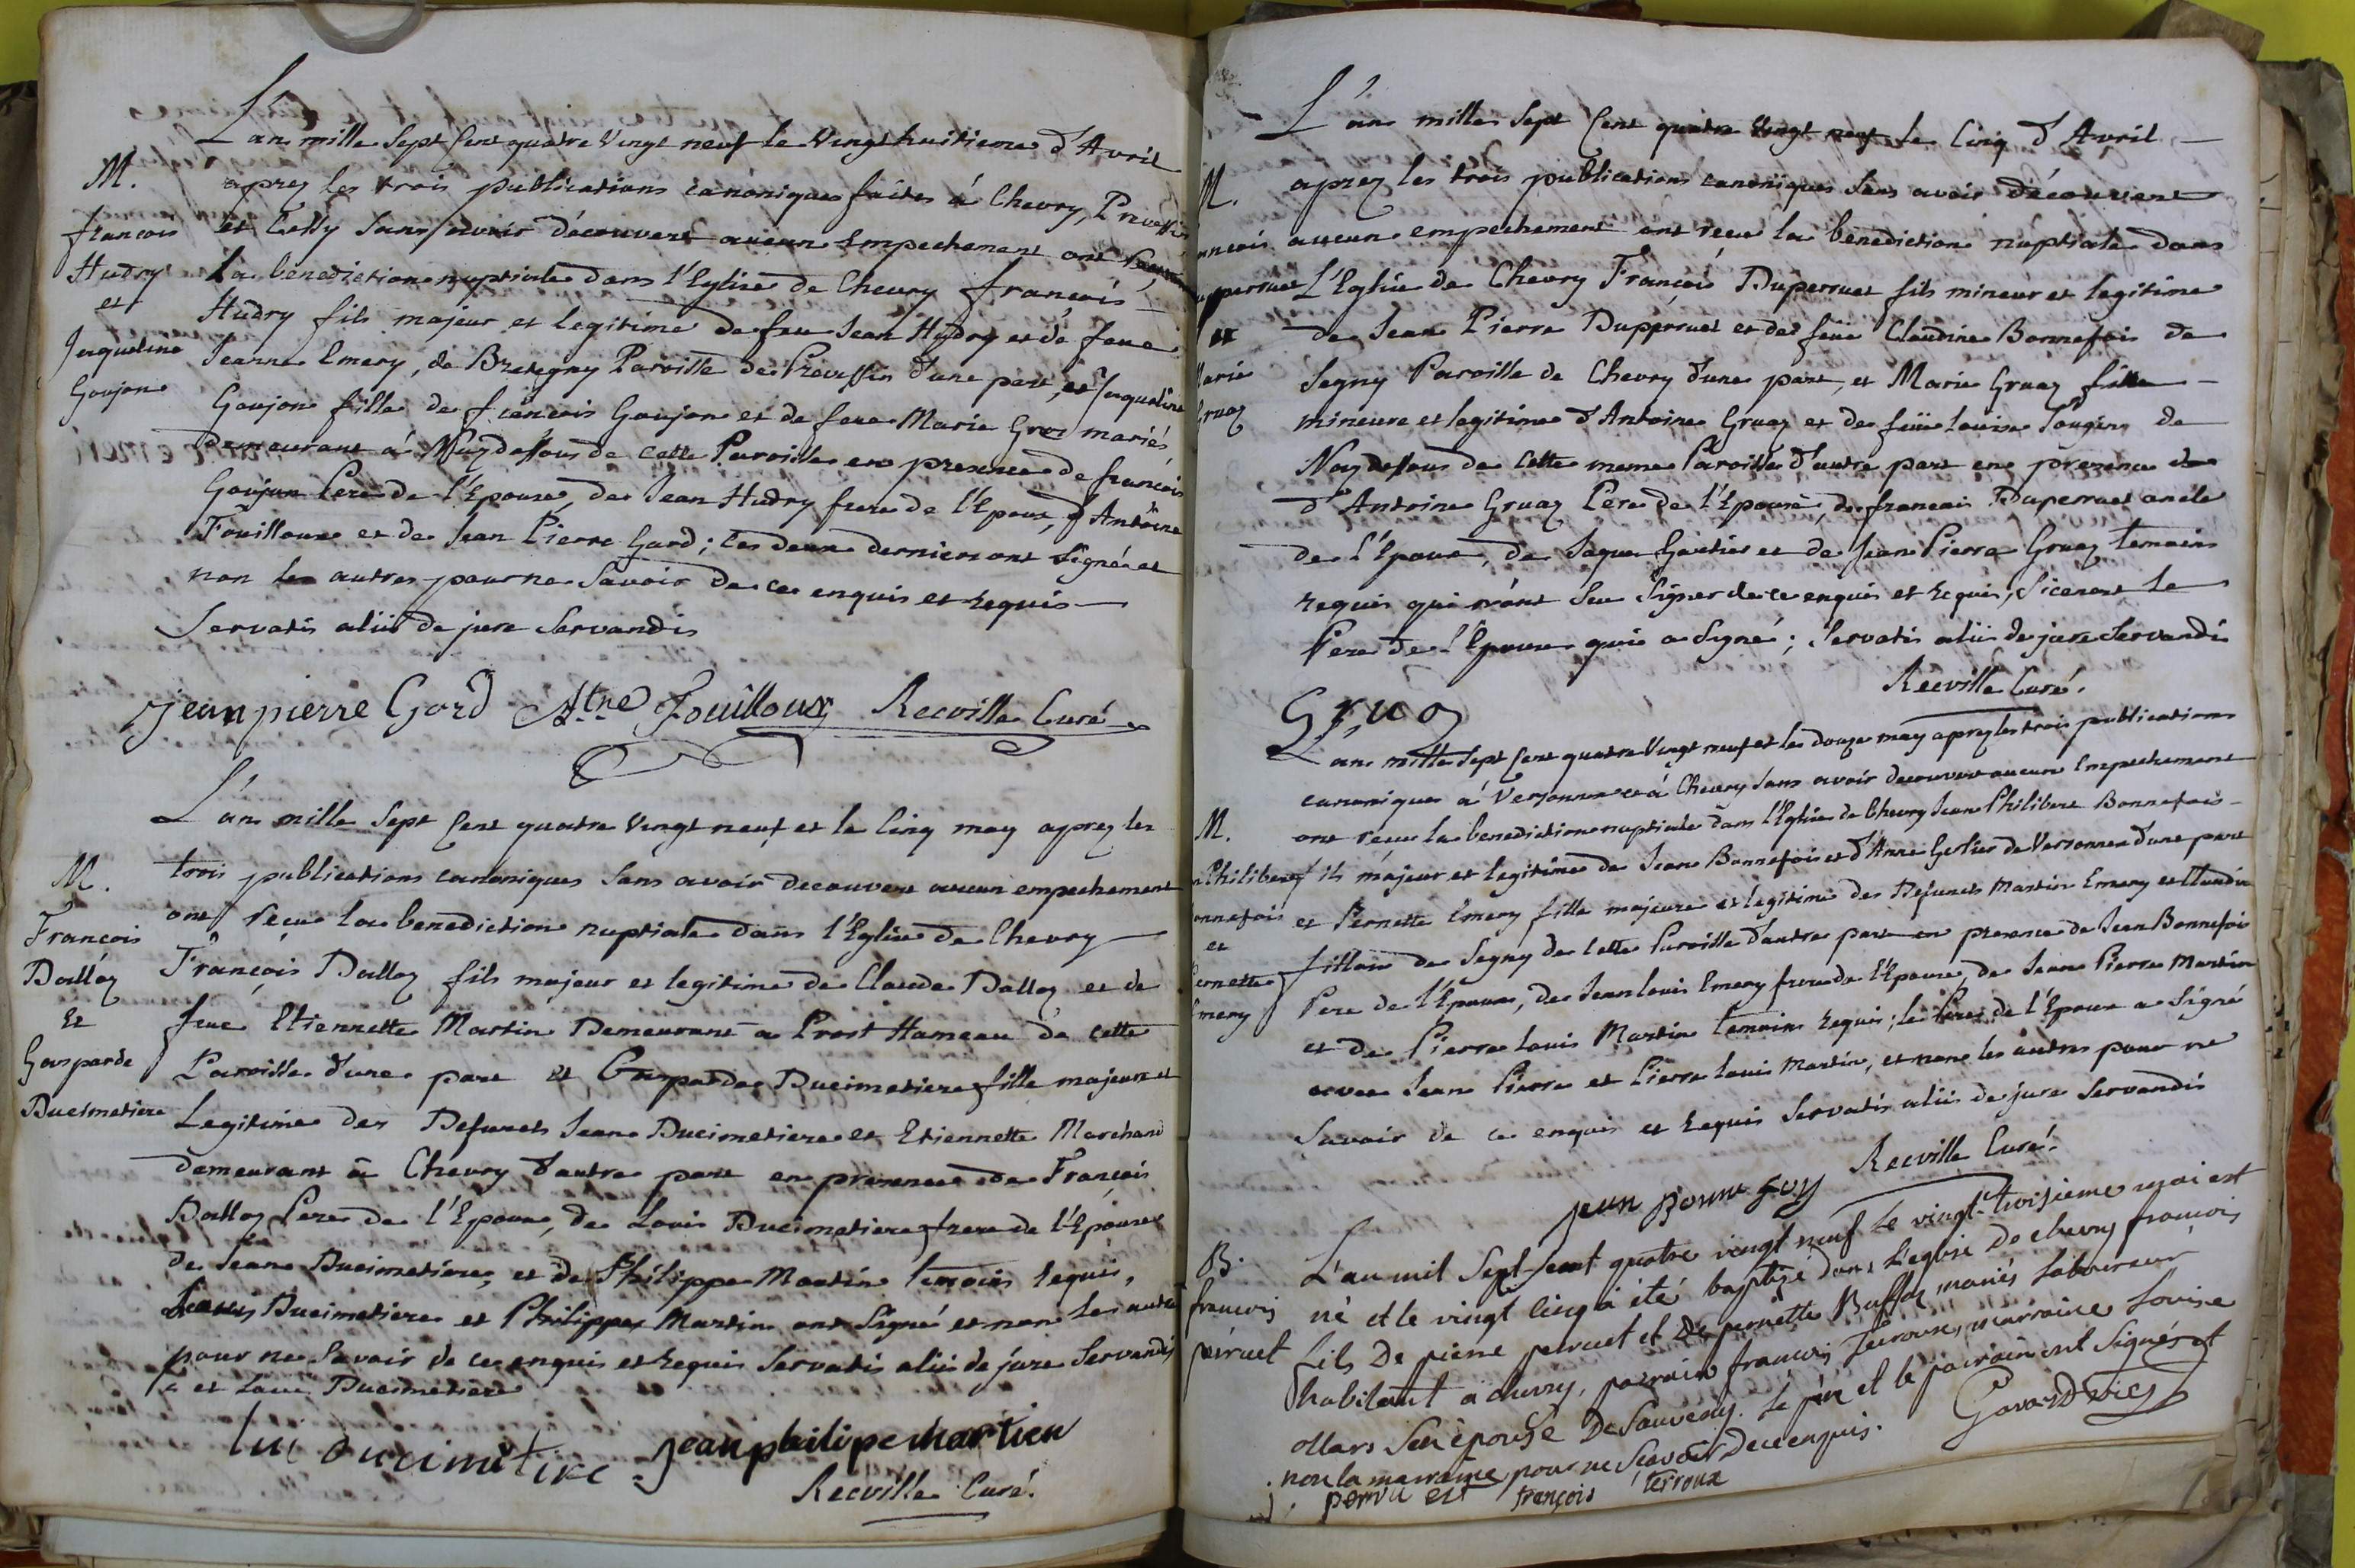 L'an mille Sept Cent quatre Vingt neuf le Vingt huitieme d'Avril
M.
aprez les trois publications canoniques faites á Chevry, Prevessin
et Cessy Sans avoir découvert aucun Empechement ont
la benediction nuptiale dans l'Eglise de Chevry françois
Hudry fils majeur et legitime de feu Jean Hudry et de feue
Jeanne Emery, de Bretegny Paroisse de Prevessin d'une part, et Jaqueline
Goujon fille de françois Goujon et de feue Marie Gros mariés
demeurant á Naydessous de cette Paroisse en presence de françois
Goujon Pere de l'Epouse, de Jean Hudry frere de l'Epoux, d'Antoine
Fouilloux et de Jean Pierre Gard; les deux derniers ont Signé et
non les autres pour ne Savoir de ce enquis et requis
Servatis aliis de jure Servandis
françois
Hudry
et
Jaqueline
Goujon
jean pierre Gard Atne Fouilloux Recville Curé
L'an mille Sept Cent quatre Vingt neuf et le Cinq may aprez les
trois publications canoniques Sans avoir decouvert aucun empechement
ont recue la benediction nuptiale dans l'Eglise de Chevry
François Dalloz fils majeur et legitime de Claude Dalloz et de
feue Etiennette Martin Demeurant a Prost Hameau de cette
Paroisse d'une part et Gasparde Ducimetiere fille majeure et
Legitime des Defunets Jean Ducimetiere et Etiennette Marchand
demeurant á Chevry d'autre part en presence de François
Dalloz Pere de l'Epoux, de Louis Ducimetiere frere de l'Epouse
de Jean Ducimetiere, et de Philippe Martin temoins requis,
Ducimetiere et Philippe Martin ont Signé et non les autres
pour ne Savoir de ce enquis et requis Servatis aliis de jure Servandis
et Louis Ducimetiere
M.
François
Dalloz
Et
Gasparde
Ducimetiere
lui ducimetire jean philipe martien
Recville Curé.
L'an mille Sept Cent quatre Vingt neuf le Cinq d'Avril
aprez les trois publications canoniques Sans avoir découvert
aucun empechement ont recu la benediction nuptiale dans
L'Eglise de Chevry François Duperruet fils mineur et legitime
de Jean Pierre Dupperruet et de feüe Claudine Bonnefois de
Segny Paroisse de Chevry d'une part, et Marie Gruaz fille
mineure et legitime d'Antoine Gruaz et de feüe Louise Sougin de
Naydessous de Cette meme Paroisse d'autre part en presence de
d'Antoine Gruaz Pere de l'Epouse, de francois Duperruet oncle
de l'Epoux, de Jaque Gautier et de Jean Pierre Gruaz temoins
requis qui n'ont Seu Signer de ce enquis et requis, Sicenest le
Pere de l'Epouse qui a Signé; Servatis aliis de jure Servandis
M.
ancois
upperruet
et
Marie
Gruaz
Recville Curé.
Gruaz
L'an mille Sept Cent quatre Vingt neuf et le douze may aprez les trois publications
canoniques á Versonnex et á Chevry Sans avoir decouvert aucun Empechement
ont recu la benediction nuptiale dans l'Eglise de Chevry Jean Philibert Bonnefois
fils majeur et legitime de Jean Bonnefois et d'Anne Gerlier de Versonnex d'une part
et Pernette Emery fille majeure et legitime des Defunets Martin Emery et Claudine
fillion de Segny de Cette Paroisse d'autre part en presence de Jean Bonnefois
Pere de l'Epoux, de Jean Louis Emery frere de l'Epouse de Jean Pierre Martin
et de Pierre Louis Martin temoins requis; le Pere de l'Epoux a Signé
avec Jean Pierre et Pierre Louis Martin, et non les autres pour ne
Savoir de ce enquis et requis Servatis aliis de jure Servandis
M.
Philibert
onnefois
et
ernette
mery
Recville Curé.
jean Bonne foy
L'an mil Sept-cent quatre vingt neuf le vingt-troisieme mai est
né et le vingt cinq a été baptisé dans l'eglise De chevry françois
fils De pierre perruet et De pernette Buffaz mariés laboureur
habitant a chevry, parrain françois Terroux, marraine Louise
ollars Son épouse De Sauverny. Le père et le parrain ont Signés et
non la marraine pour ne Scavoir de ce enquis.
B.
françois
perruet
Gavard vic
françois terroux